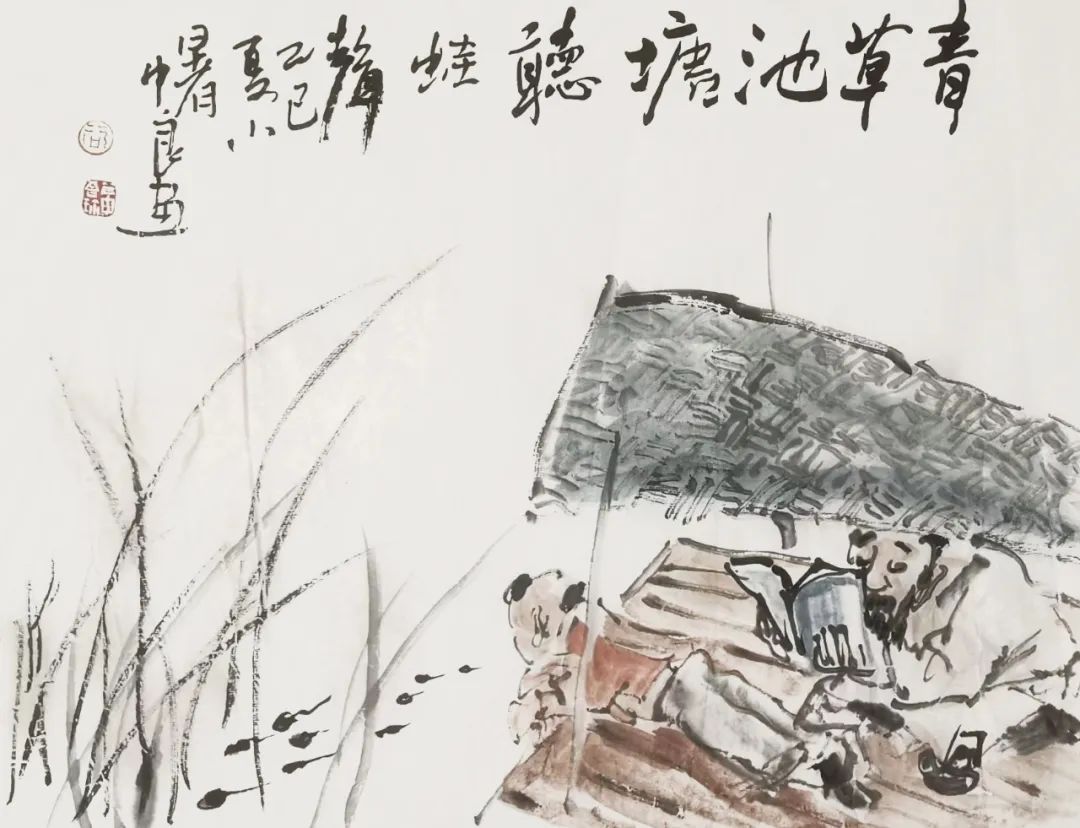 青草池塘聽蛙聲
乙巳
夏小
暑
中良畫